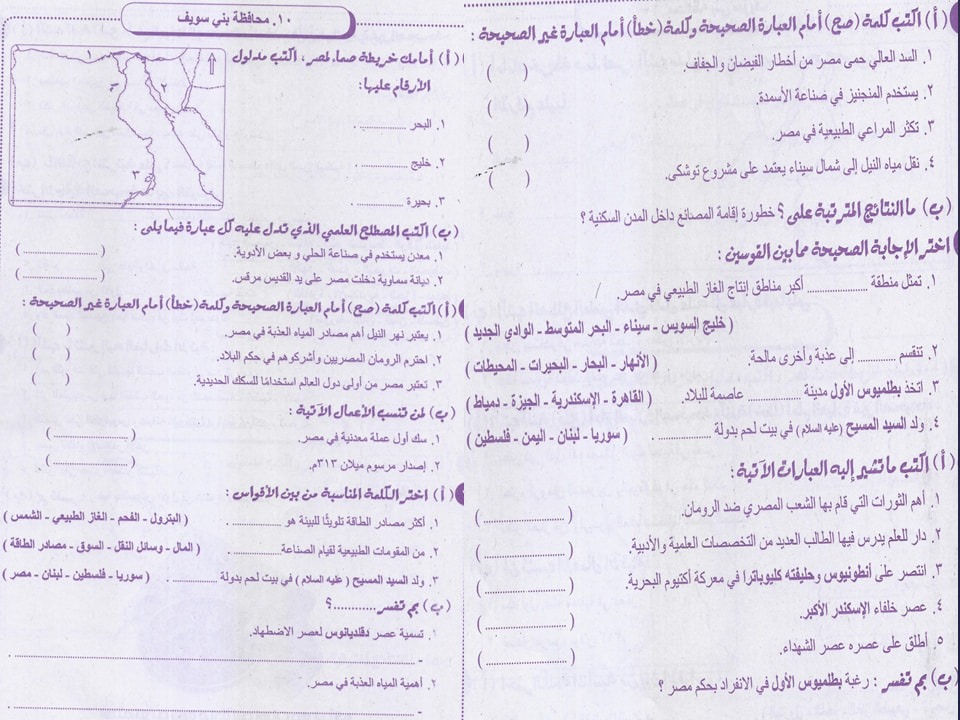 (أ) اكتب كلمة (صح) أمام العبارة الصحيحة وكلمة (خطأ) أمام العبارة غير الصحيحة :
١. السد العالي حمى مصر من أخطار الفيضان والجفاف. ( )
٢. يستخدم المنجنيز في صناعة الأسمدة. ( )
٣. تكثر المراعي الطبيعية في مصر. ( )
٤. نقل مياه النيل إلى شمال سيناء يعتمد على مشروع توشكى. ( )
(ب) ما النتائج المترتبة على ؟ خطورة إقامة المصانع داخل المدن السكنية ؟
اختر الإجابة الصحيحة مما بين القوسين :
١. تمثل منطقة ............ أكبر مناطق إنتاج الغاز الطبيعي في مصر.
( خليج السويس - سيناء - البحر المتوسط - الوادي الجديد )
٢. تنقسم ............ إلى عذبة وأخرى مالحة ( الأنهار - البحار - البحيرات - المحيطات )
٣. اتخذ بطلميوس الأول مدينة ............ عاصمة للبلاد. ( القاهرة - الإسكندرية - الجيزة - دمياط )
٤. ولد السيد المسيح (عليه السلام) في بيت لحم بدولة ............ . ( سوريا - لبنان - اليمن - فلسطين )
(أ) اكتب ما تشير إليه العبارات الآتية :
١. أهم الثورات التي قام بها الشعب المصري ضد الرومان. (............)
٢. دار للعلم يدرس فيها الطالب العديد من التخصصات العلمية والأدبية. (............)
٣. انتصر على أنطونيوس وحليفته كليوباترا في معركة أكتيوم البحرية. (............)
٤. عصر خلفاء الإسكندر الأكبر. (............)
٥. أطلق على عصره عصر الشهداء. (............)
(ب) بم تفسر : رغبة بطلميوس الأول في الانفراد بحكم مصر ؟
١٠. محافظة بني سويف
(أ) أمامك خريطة صماء لمصر، اكتب مدلول
الأرقام عليها :
١. البحر ............ .
٢. خليج ............ .
٣. بحيرة ............ .
١
٢
٣
(ب) اكتب المصطلح العلمي الذي تدل عليه كل عبارة فيما يلي :
١. معدن يستخدم في صناعة الحلي و بعض الأدوية. (............)
٢. ديانة سماوية دخلت مصر على يد القديس مرقس. (............)
(أ) اكتب كلمة (صح) أمام العبارة الصحيحة وكلمة (خطأ) أمام العبارة غير الصحيحة :
١. يعتبر نهر النيل أهم مصادر المياه العذبة في مصر. ( )
٢. احترم الرومان المصريين وأشركوهم في حكم البلاد. ( )
٣. تعتبر مصر من أولى دول العالم استخدامًا للسكك الحديدية. ( )
(ب) لمن تنسب الأعمال الآتية :
١. سك أول عملة معدنية في مصر. (............)
٢. إصدار مرسوم ميلان ٣١٣م. (............)
(أ) اختر الكلمة المناسبة من بين الأقواس :
١. أكثر مصادر الطاقة تلويثًا للبيئة هو ............ . ( البترول - الفحم - الغاز الطبيعي - الشمس )
٢. من المقومات الطبيعية لقيام الصناعة ............ . ( المال - وسائل النقل - السوق - مصادر الطاقة )
٣. ولد السيد المسيح ( عليه السلام ) في بيت لحم بدولة ............ . ( سوريا - فلسطين - لبنان - مصر )
(ب) بم تفسر ............ ؟
١. تسمية عصر دقلديانوس لعصر الاضطهاد.
٢. أهمية المياه العذبة في مصر.